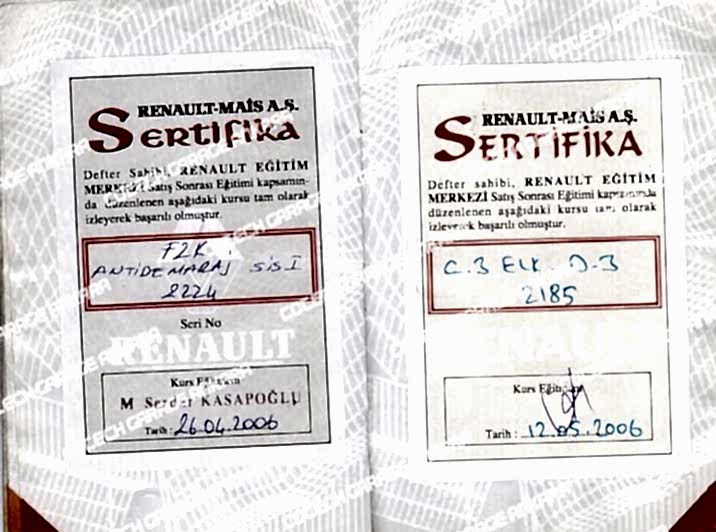 RENAULT-MAİS A.Ş.
SERTİFİKA
Defter Sahibi, RENAULT EĞİTİM
MERKEZİ Satış Sonrası Eğitimi kapsamın-
da düzenlenen aşağıdaki kursu tam olarak
izleyerek başarılı olmuştur.
F2K
ANTİDEMARAJ SİS I
2224
Seri No
RENAULT
Kurs
M Serdar KASAPOĞLU
Tarih : 26.04.2006
RENAULT-MAİS A.Ş.
SERTİFİKA
Defter sahibi, RENAULT EĞİTİM
MERKEZİ Satış Sonrası Eğitimi kapsamında
düzenlenen aşağıdaki kursu tam olarak
izleyerek başarılı olmuştur.
C.3 ELK. D.3
2185
Kurs
Tarih : 12.05.2006